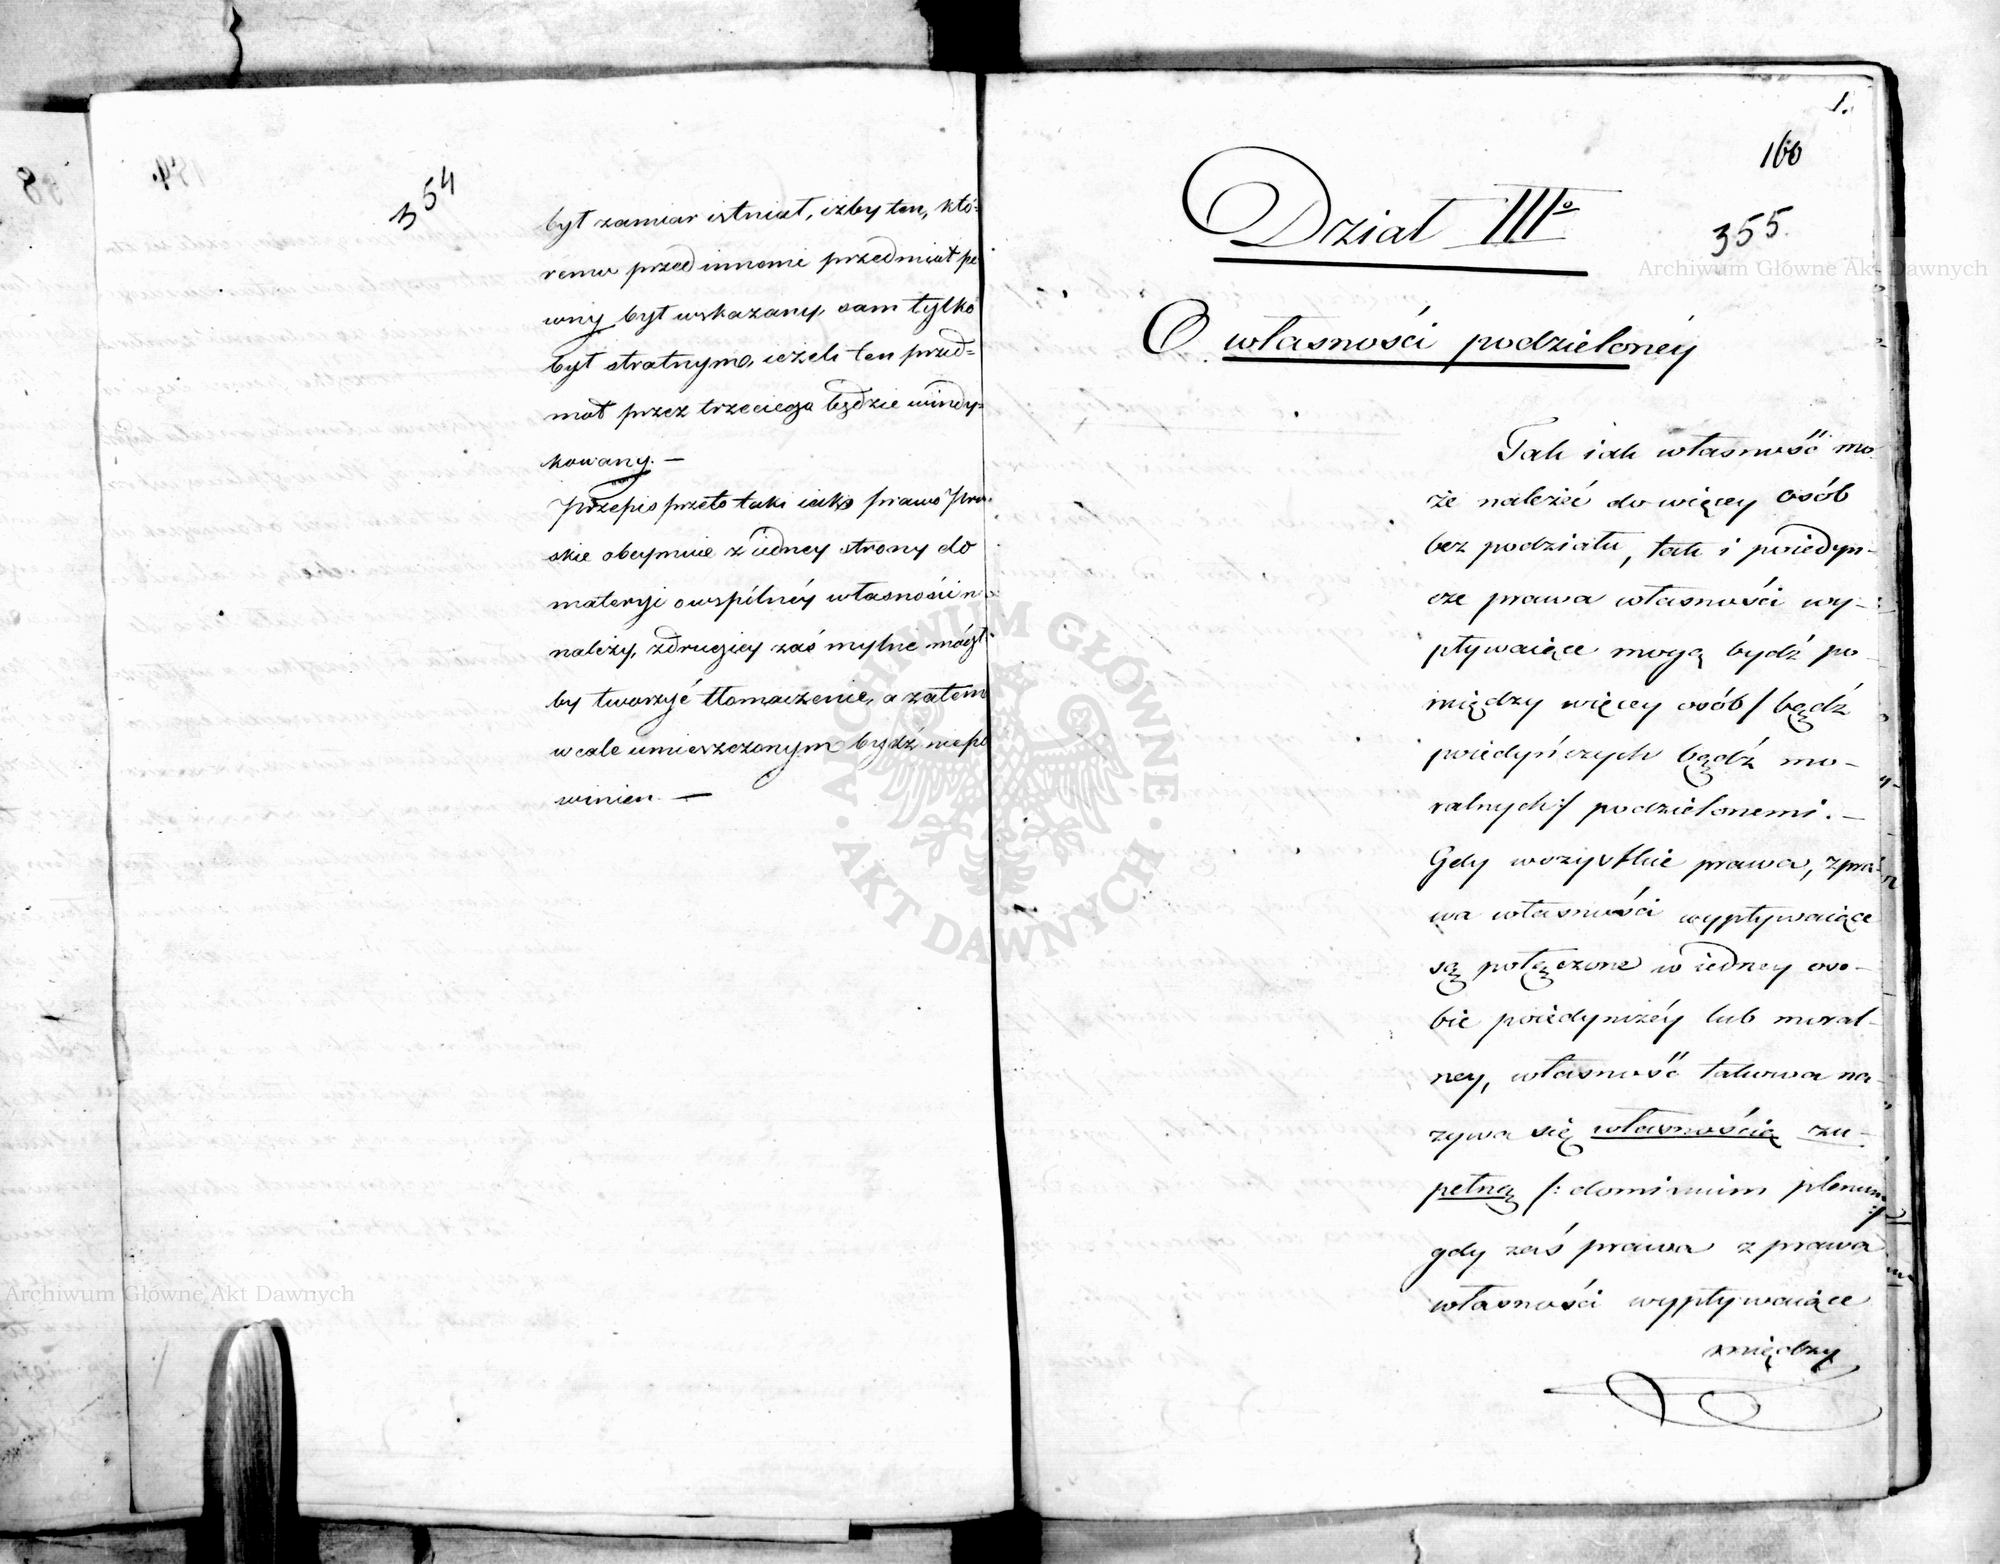 354
był zamiar istniał, iżby ten, któ=
remu przed innemi przedmiot pe
wny był wskazany, sam tylko
był stratnym, ieżeli ten przed=
miot przez trzeciego będzie windy=
kowany. —
Przepis przeto taki iako prawo Pru
skie obeymuie z iedney strony do
materyi o wspólnéy własności n
należy, z drugiey zaś mylne mógł
by tworzyć tłomaczenie, a zatem
wcale umieszczonym bydź niepo
winien. —
1.
160
355.
Dział III°
O własności podzielonéy
Tak iak własność mo
że należéć do więcey osób
bez podziału, tak i poiedyn-
cze prawa własności wy-
pływaiące mogą bydź po-
między więcey osób /: bądź
poiedyńczych bądź mo-
ralnych :/ podzielonemi. —
Gdy wszystkie prawa, z pra-
wa własności wypływaiące
są połączone w iedney oso-
bie poiedynczéy lub moral-
ney, własność takowa na-
zywa się własnością zu-
pełną /: dominium plenum :/
gdy zaś prawa z prawa
własności wypływaiące
między
Archiwum Główne Akt Dawnych
Archiwum Główne Akt Dawnych
ARCHIWUM GŁÓWNE · AKT DAWNYCH ·